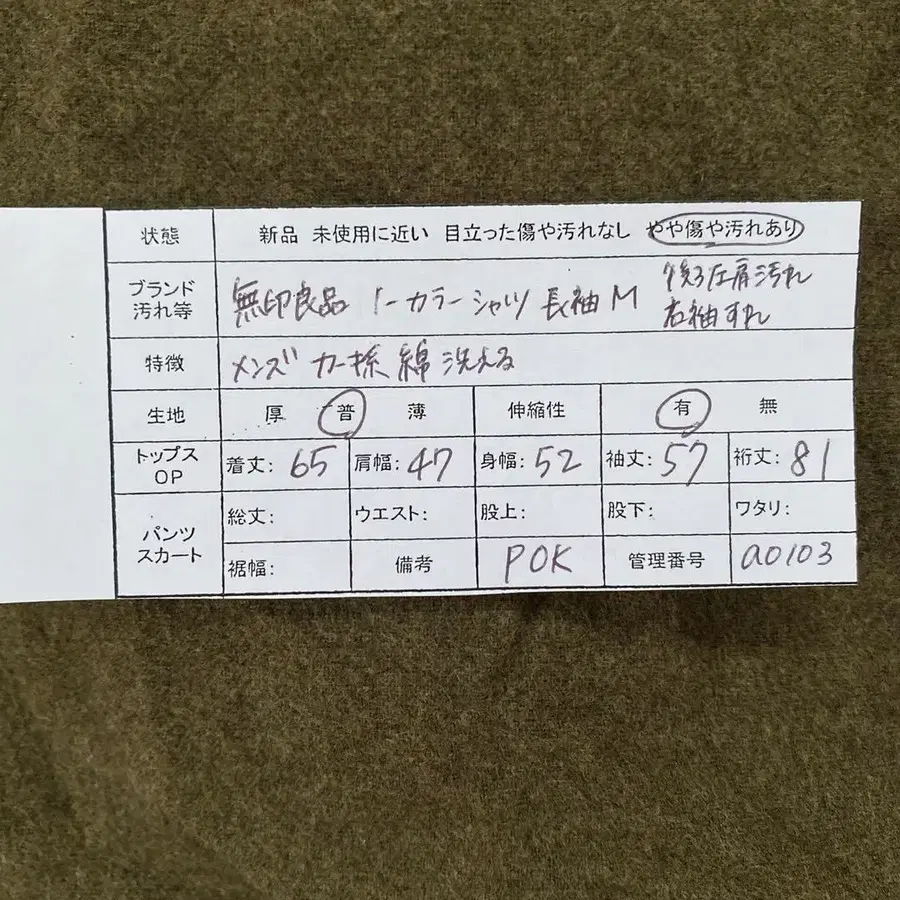 状態 新品 未使用に近い 目立った傷や汚れなし やや傷や汚れあり
ブランド 汚れ等 無印良品 ノーカラーシャツ 長袖 M 後ろ左肩汚れ 右袖すれ
特徴 メンズ カーキ系 綿 洗える
生地 厚 普 薄 伸縮性 有 無
トップス OP 着丈: 65 肩幅: 47 身幅: 52 袖丈: 57 裄丈: 81
パンツ スカート 総丈: ウエスト: 股上: 股下: ワタリ:
裾幅: 備考 POK 管理番号 a0103